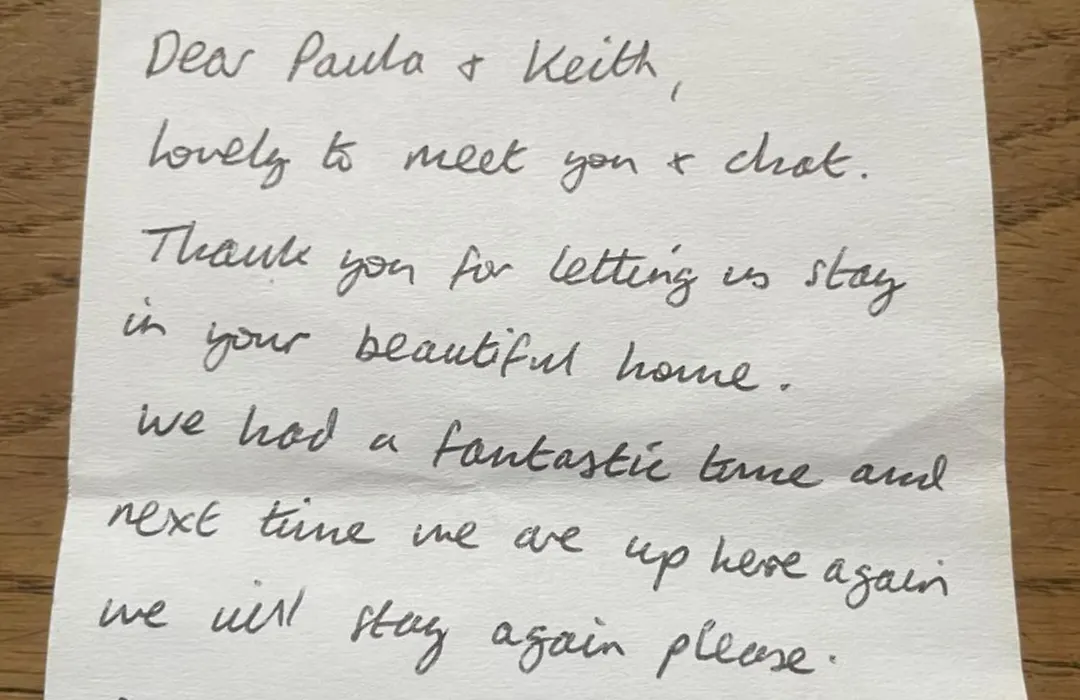 Dear Paula & Keith,
Lovely to meet you & chat.
Thank you for letting us stay
in your beautiful home.
We had a fantastic time and
next time we are up here again
we will stay again please.